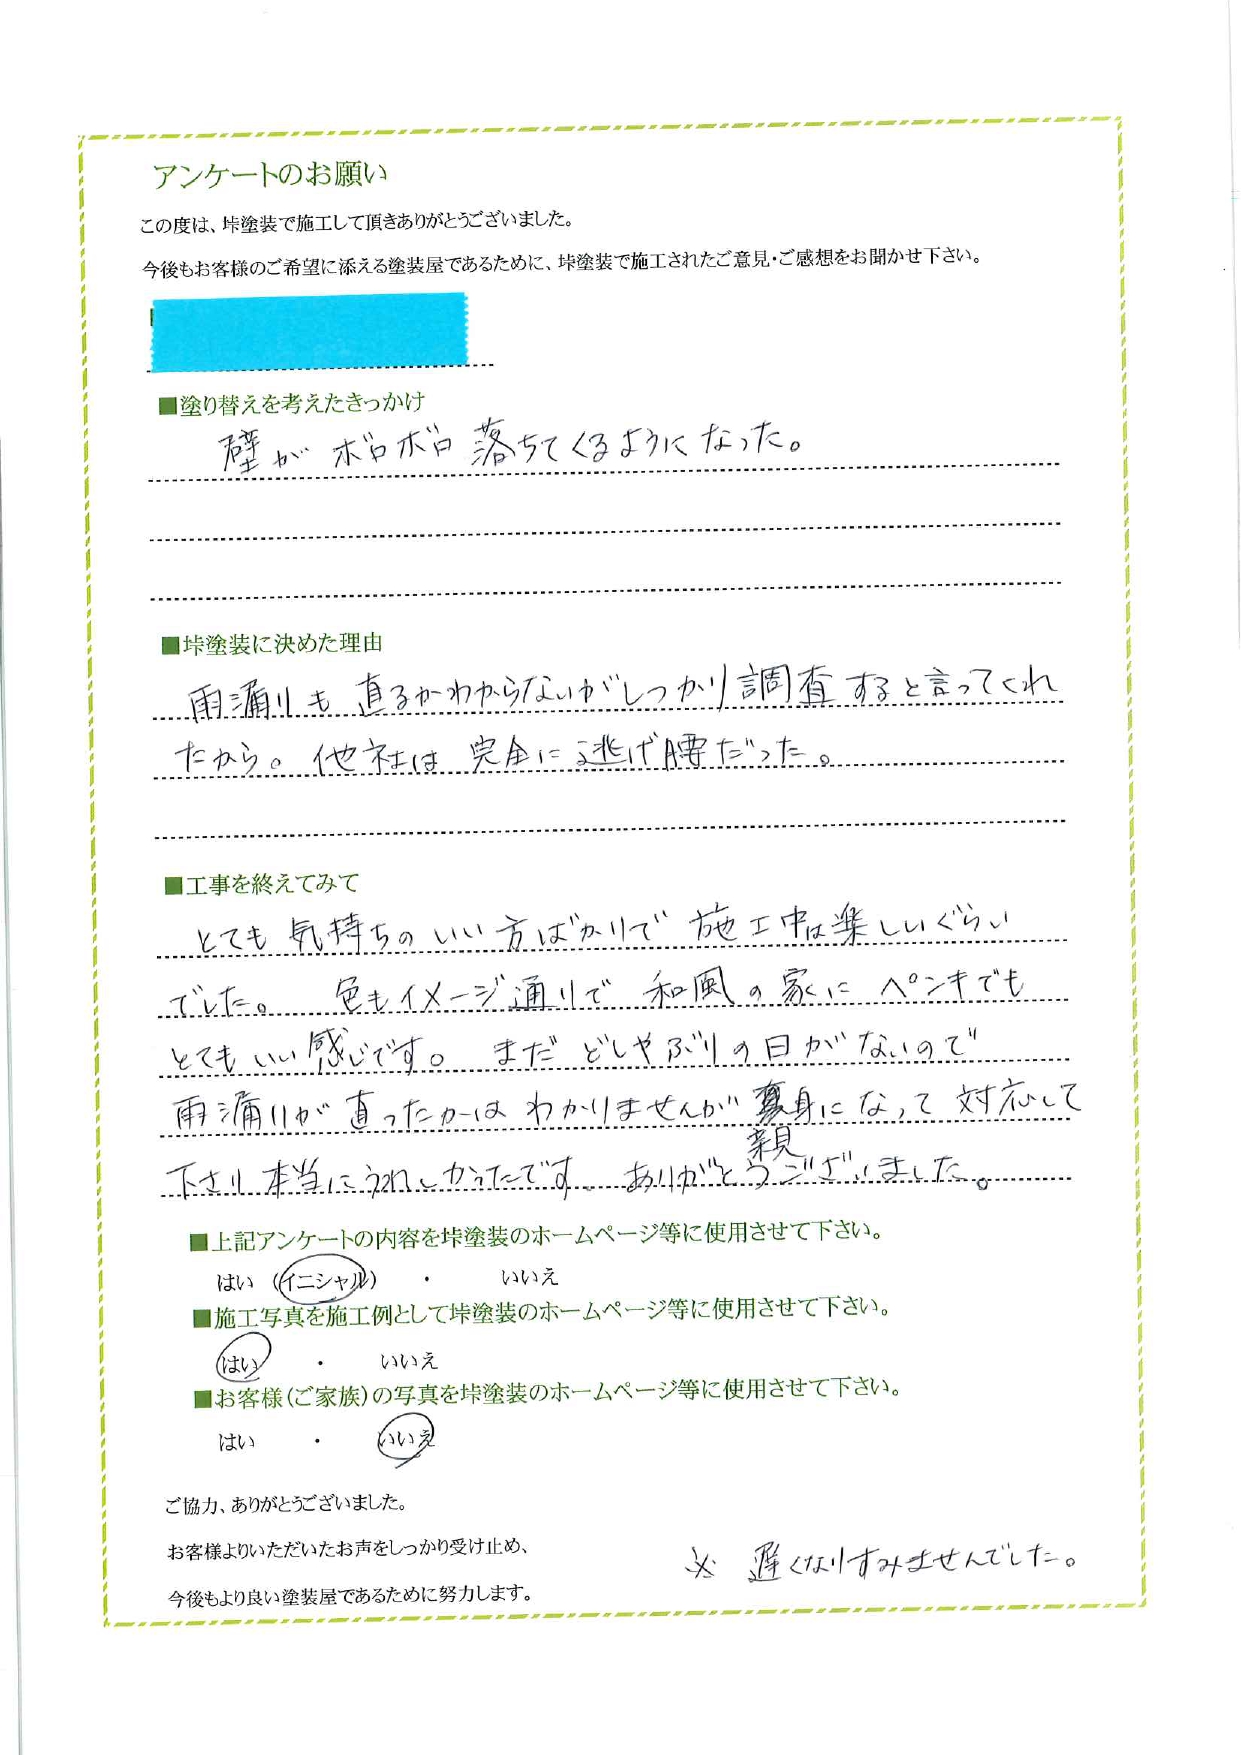 アンケートのお願い
この度は、垰塗装で施工して頂きありがとうございました。
今後もお客様のご希望に添える塗装屋であるために、垰塗装で施工されたご意見・ご感想をお聞かせ下さい。
■塗り替えを考えたきっかけ
壁がボロボロ落ちてくるようになった。
■垰塗装に決めた理由
雨漏りも直るかわからないがしっかり調査すると言ってくれ
たから。他社は完全に逃げ腰だった。
■工事を終えてみて
とても気持ちのいい方ばかりで施工中は楽しいぐらい
でした。色もイメージ通りで和風の家にペンキでも
とてもいい感じです。まだどしゃぶりの日がないので
雨漏りが直ったかはわかりませんが身になって対応して
親
下さり本当にうれしかったです。ありがとうございました。
■上記アンケートの内容を垰塗装のホームページ等に使用させて下さい。
はい (イニシャル) ・ いいえ
■施工写真を施工例として垰塗装のホームページ等に使用させて下さい。
はい ・ いいえ
■お客様(ご家族)の写真を垰塗装のホームページ等に使用させて下さい。
はい ・ いいえ
ご協力、ありがとうございました。
お客様よりいただいたお声をしっかり受け止め、
今後もより良い塗装屋であるために努力します。
※ 遅くなりすみませんでした。